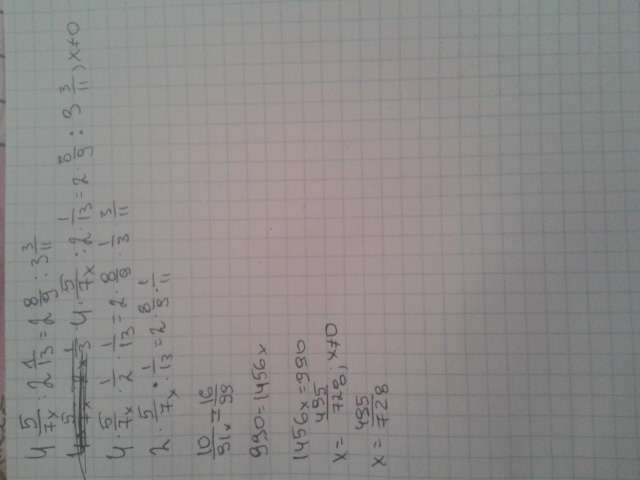 4 5/7x : 2 1/13 = 2 8/9 : 3 3/11
4 · 5/7x : 2 · 1/13 = 2 8/9 : 3 3/11, x≠0
4 · 5/7x · 1/2 · 1/13 = 2 · 8/9 · 1/3 3/11
2 · 5/7x · 1/13 = 2 · 8/9 · 1/11
10/91x = 16/99
990 = 1456x
1456x = 990
x = 495/728, x≠0
x = 495/728